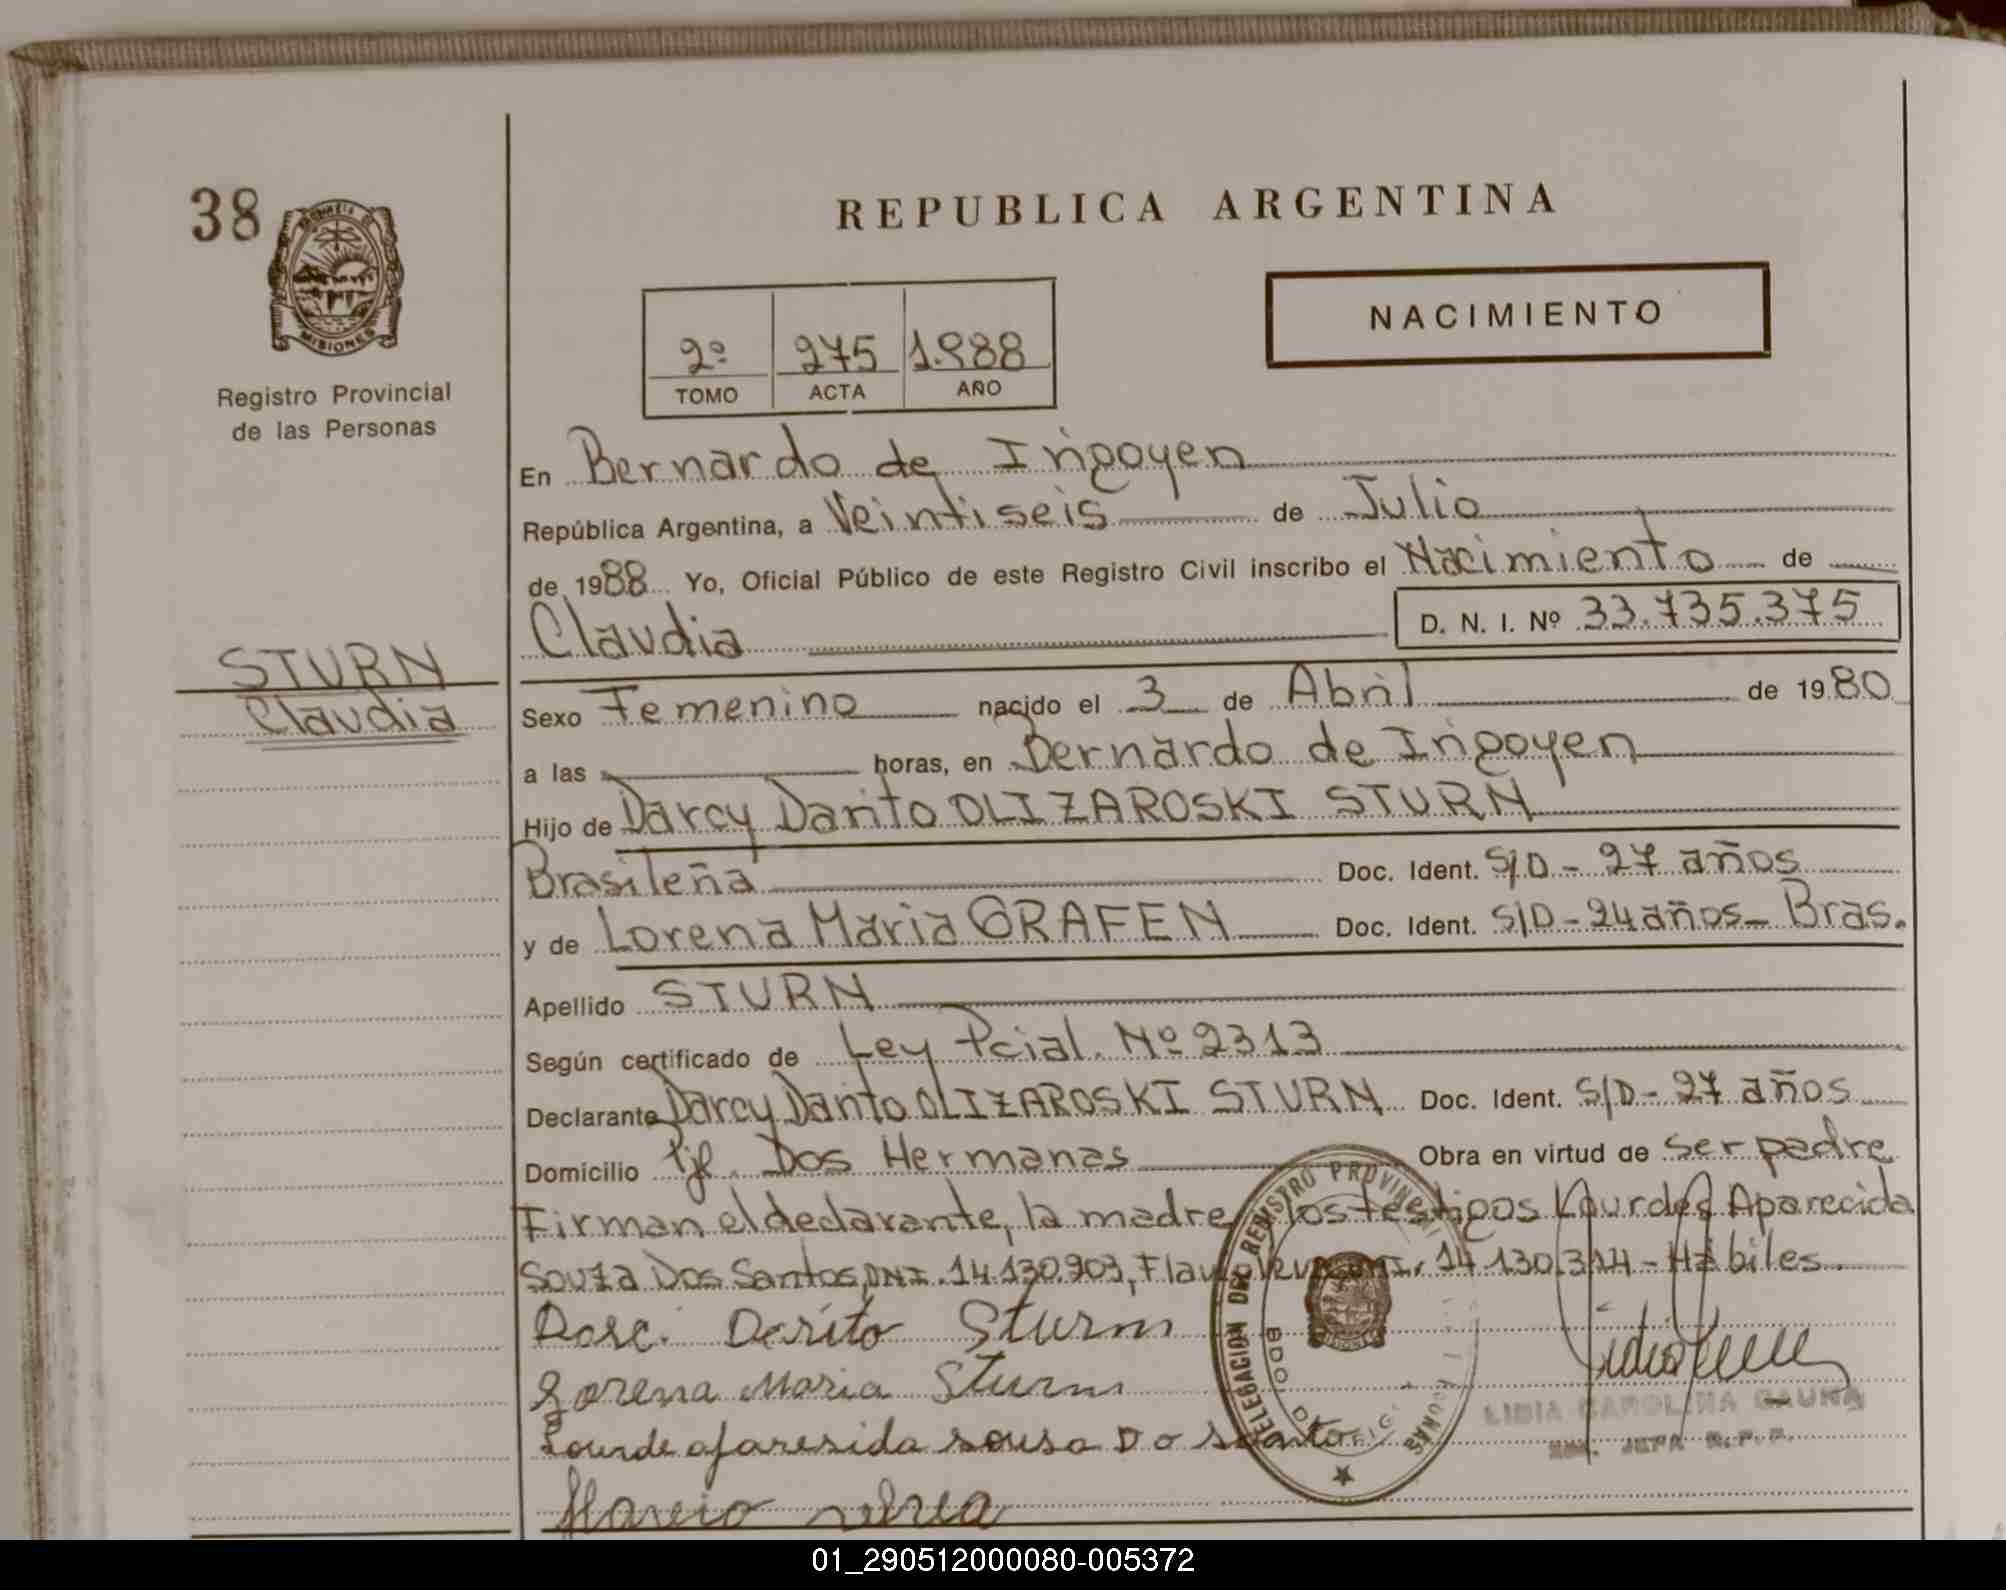 38
MISIONES
Registro Provincial
de las Personas
REPUBLICA ARGENTINA
NACIMIENTO
2º 275 1.988
TOMO ACTA AÑO
En Bernardo de Irigoyen
República Argentina, a Veintiseis de Julio
de 1988 Yo, Oficial Público de este Registro Civil inscribo el Nacimiento de
Claudia D. N. I. Nº 33.735.375
STURN
Claudia
Sexo Femenino nacido el 3 de Abril de 1980
a las horas, en Bernardo de Irigoyen
Hijo de Darcy Danto OLIZAROSKI STURN
Brasileña Doc. Ident. S/D - 27 años
y de Lorena Maria GRAFEN Doc. Ident. S/D - 24 años - Bras.
Apellido STURN
Según certificado de Ley Pcial. Nº 2313
Declarante Darcy Danto OLIZAROSKI STURN Doc. Ident. S/D - 27 años
Domicilio Pje. Dos Hermanas Obra en virtud de ser padre
Firman el declarante, la madre los testigos Lourdes Aparecida
Souza Dos Santos, DNI. 14.130.903, 14.130.314 - Hábiles.
Darito Sturm
Lorena Maria Sturm
Lourde aparesida sousa Do santo
DELEGACION DEL REGISTRO PROVINCIAL
BDO
LIDIA CAROLINA GAUNA
JEFA R.P.P.
01_290512000080-005372